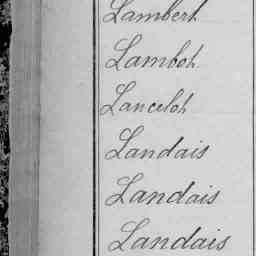 Lambert
Lambot
Lancelot
Landais
Landais
Landais